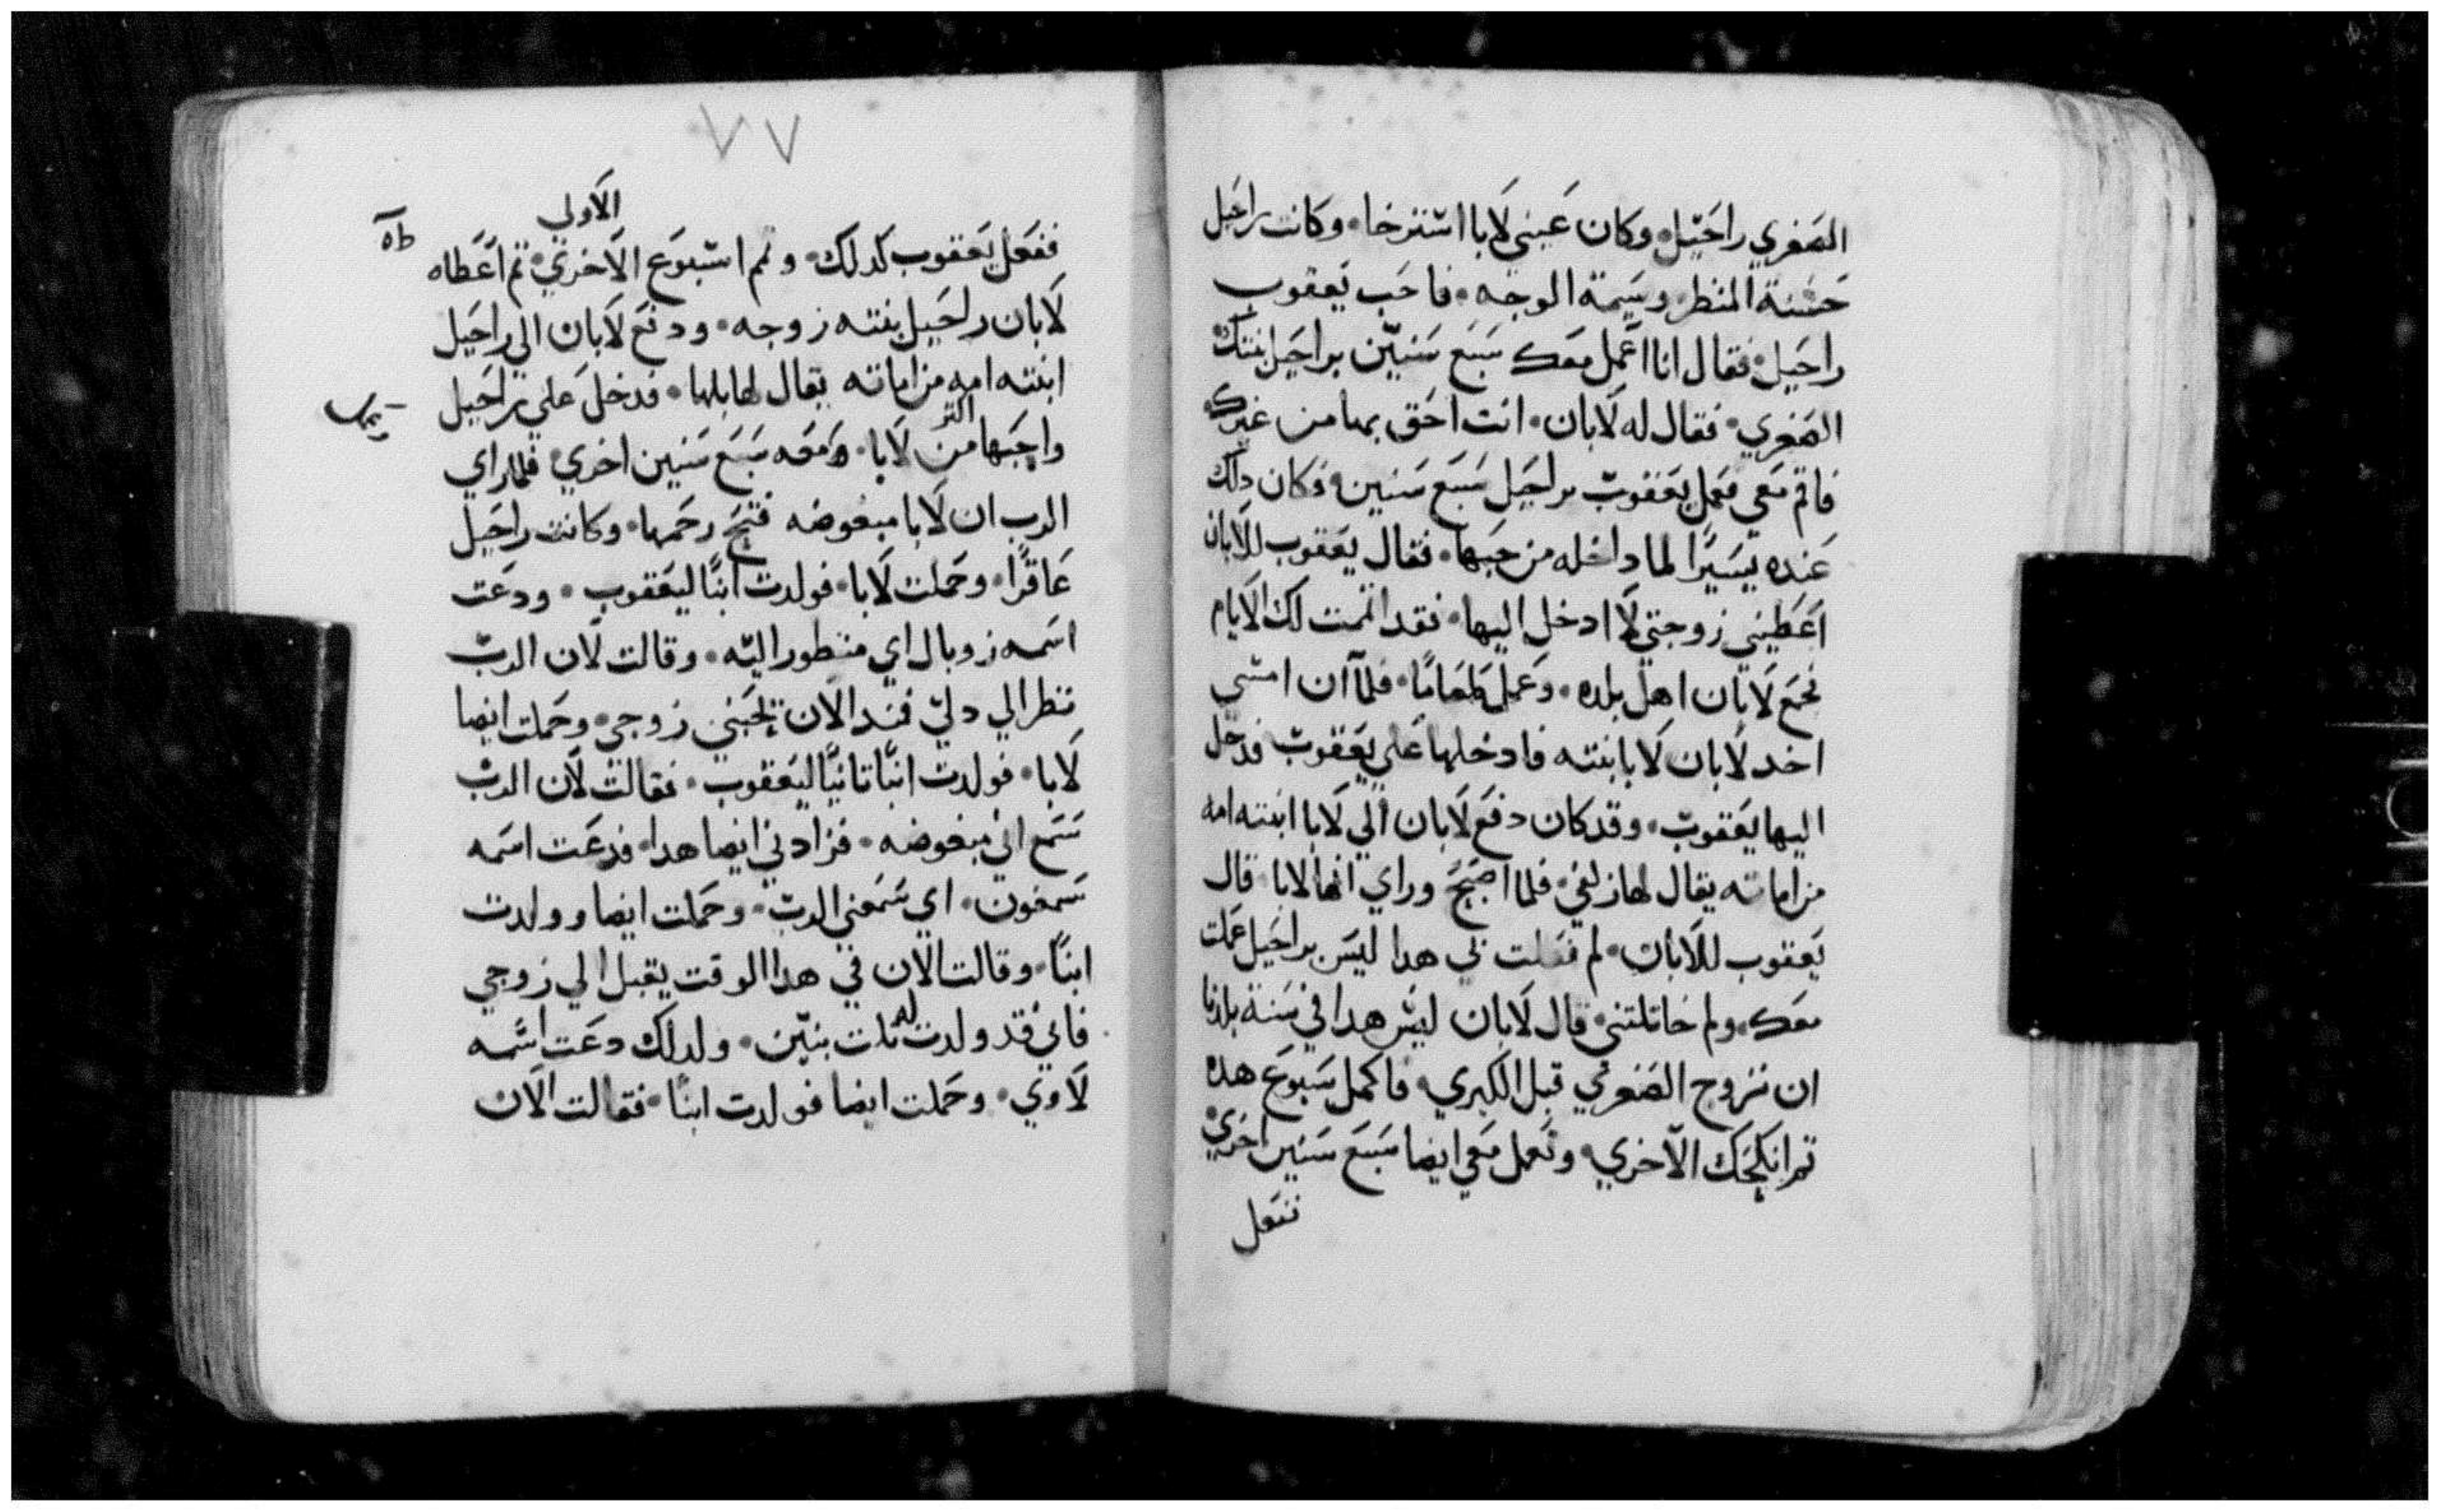 الصغري راحيل وكان عيني لابا استرخا وكانت راحيل
حسنة المنظر وسيمة الوجه فاحب يعقوب
راحيل فقال انا اعمل معك سبع سنين براحيل بنتك
الصغري فقال له لابان انت احق بها من غيرك
فاقم معي فعمل يعقوب براحيل سبع سنين فكان دلك
عنده يسيرًا لما داخله من حبها فقال يعقوب للابان
اعطيني زوجتي لا ادخل اليها فقد اتممت لك الايام
فجمع لابان اهل بلده وعمل طعامًا فلما ان امسي
اخد لابان لابا بنته فادخلها علي يعقوب فدخل
اليها يعقوب وقد كان دفع لابان الي لابا ابنته امه
من اماته يقال لها زلفي فلما اصبح وراي انها لابا قال
يعقوب للابان لم فعلت بي هدا ليس براحيل عملت
معك ولم خاتلتني قال لابان ليس هدا في سنة بلدنا
ان نزوج الصغري قبل الكبري فاكمل سبوع هده
تم انكحك الاخري وتعمل معي ايضا سبع سنين اخري
ففعل
٧٧
الاولي
ففعل يعقوب كدلك وتمم اسبوع الاخري تم اعطاه
لابان راحيل بنته زوجه ودفع لابان الي راحيل
ابنته امه من اماته يقال لها بلها فدخل علي راحيل
اكتر
واحبها من لابا معه سبع سنين اخري فلما راي
الرب ان لابا مبغوضه فتح رحمها وكانت راحيل
عاقرًا وحملت لابا فولدت ابنًا ليعقوب ودعت
اسمه زوبال اي منظور اليه وقالت لان الرب
نظر الي دلي فمند الان يحبني زوجي وحملت ايضا
لابا فولدت ابنًا تانيًا ليعقوب فقالت لان الرب
سمع اني مبغوضه فزادني ايضا هدا فدعت اسمه
سمعون اي سمعني الرب وحملت ايضا وولدت
ابنًا وقالت الان في هدا الوقت يقبل الي زوجي
فاني قد ولدت له تلت بنين ولدلك دعت اسمه
لاوي وحملت ايضا فولدت ابنًا فقالت الان